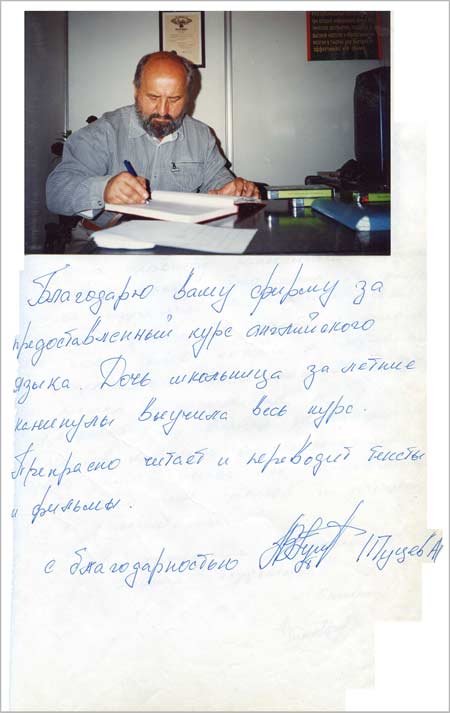 Благодарю вашу фирму за
предоставленный курс английского
языка. Дочь школьница за летние
каникулы выучила весь курс.
Прекрасно читает и переводит тексты
и фильмы.
с благодарностью